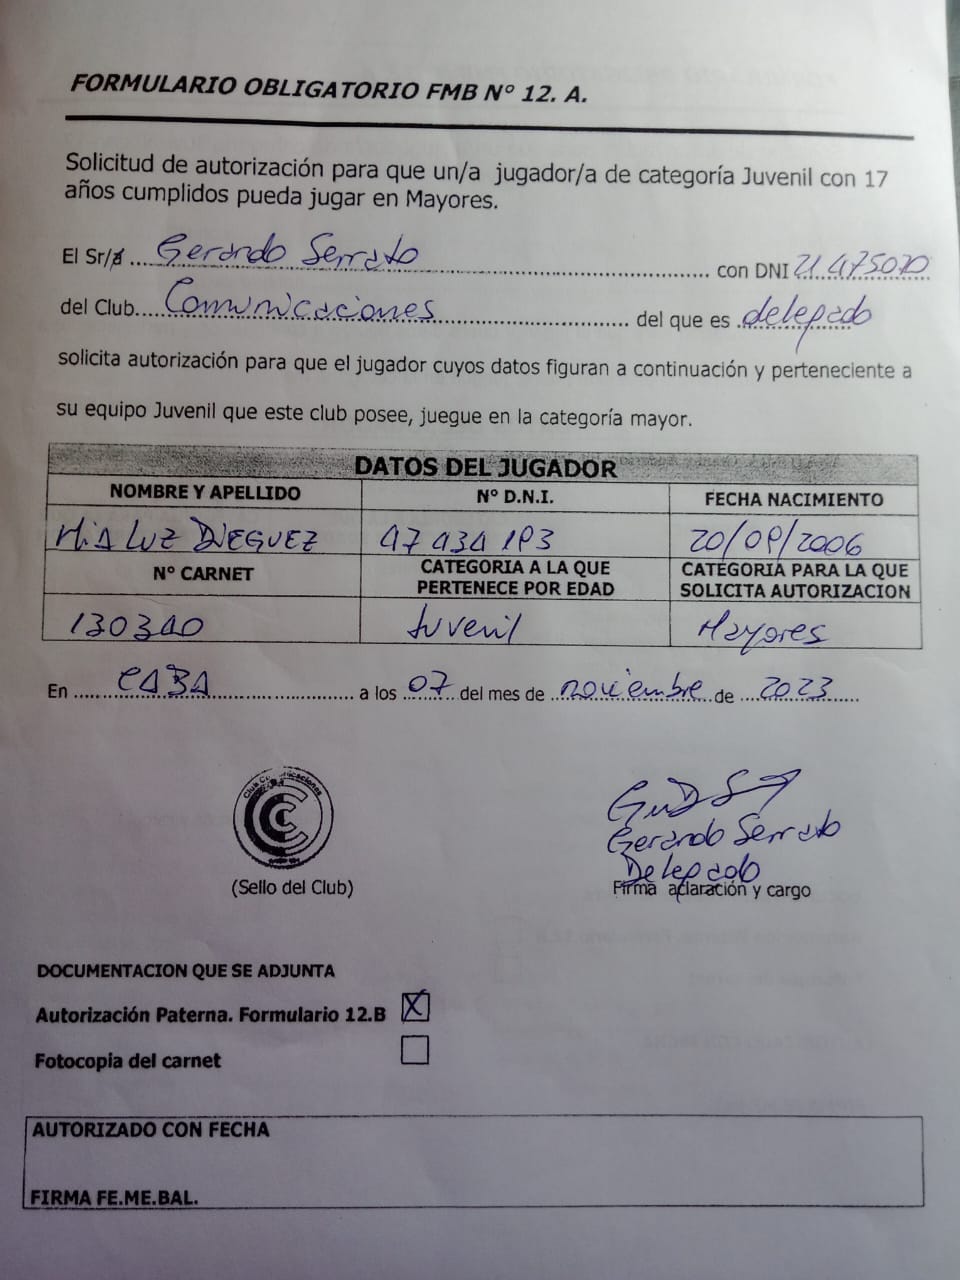 FORMULARIO OBLIGATORIO FMB Nº 12. A.
Solicitud de autorización para que un/a jugador/a de categoría Juvenil con 17
años cumplidos pueda jugar en Mayores.
El Sr/a ... Gerardo Serrato ... con DNI 21.475070
del Club... Comunicaciones ... del que es . delegado
solicita autorización para que el jugador cuyos datos figuran a continuación y perteneciente a
su equipo Juvenil que este club posee, juegue en la categoría mayor.
DATOS DEL JUGADOR
NOMBRE Y APELLIDO Nº D.N.I. FECHA NACIMIENTO
MIA LUZ DIEGUEZ 20/09/2006
Nº CARNET CATEGORIA A LA QUE PERTENECE POR EDAD CATEGORIA PARA LA QUE SOLICITA AUTORIZACION
130340 Juvenil Mayores
En ... CABA ... a los 07 del mes de noviembre de 2023
Club Comunicaciones
Gerardo Serrato
Delegado
(Sello del Club) Firma aclaración y cargo
DOCUMENTACION QUE SE ADJUNTA
Autorización Paterna. Formulario 12.B X
Fotocopia del carnet
AUTORIZADO CON FECHA
FIRMA FE.ME.BAL.